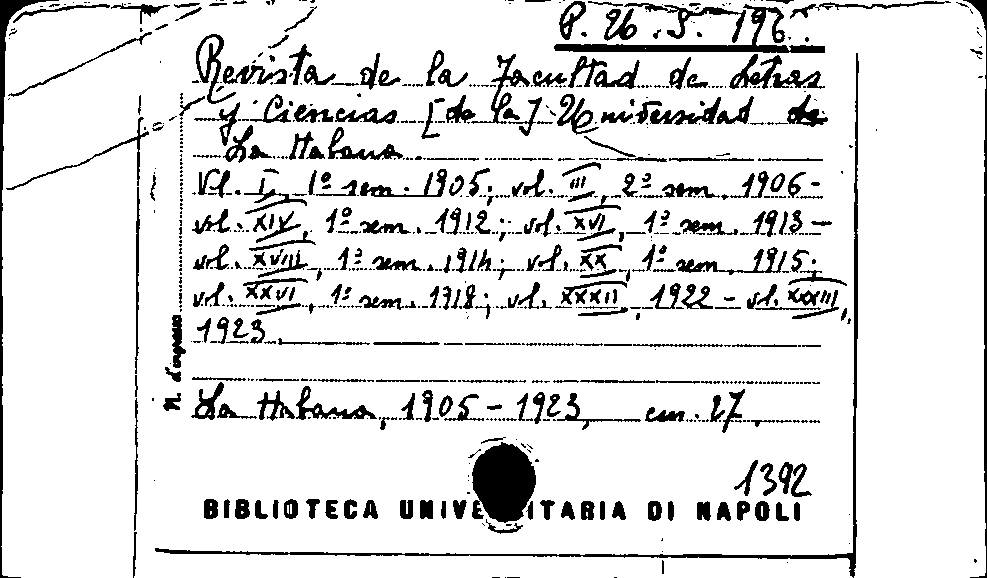 P. 26. S. 196.
Revista de la Facultad de Letras
y Ciencias [de la] Universidad de
La Habana.
Vol. I, 1º sem. 1905; vol. III, 2º sem. 1906-
vol. XIV, 1º sem. 1912; vol. XVI, 1º sem. 1913-
vol. XVIII, 1º sem. 1914; vol. XX, 1º sem. 1915;
vol. XXVI, 1º sem. 1918; vol. XXXII, 1922 - vol. XXXIII,
1923.
N. d'ingresso
La Habana, 1905-1923, cm. 27.
1392
BIBLIOTECA UNIVERSITARIA DI NAPOLI